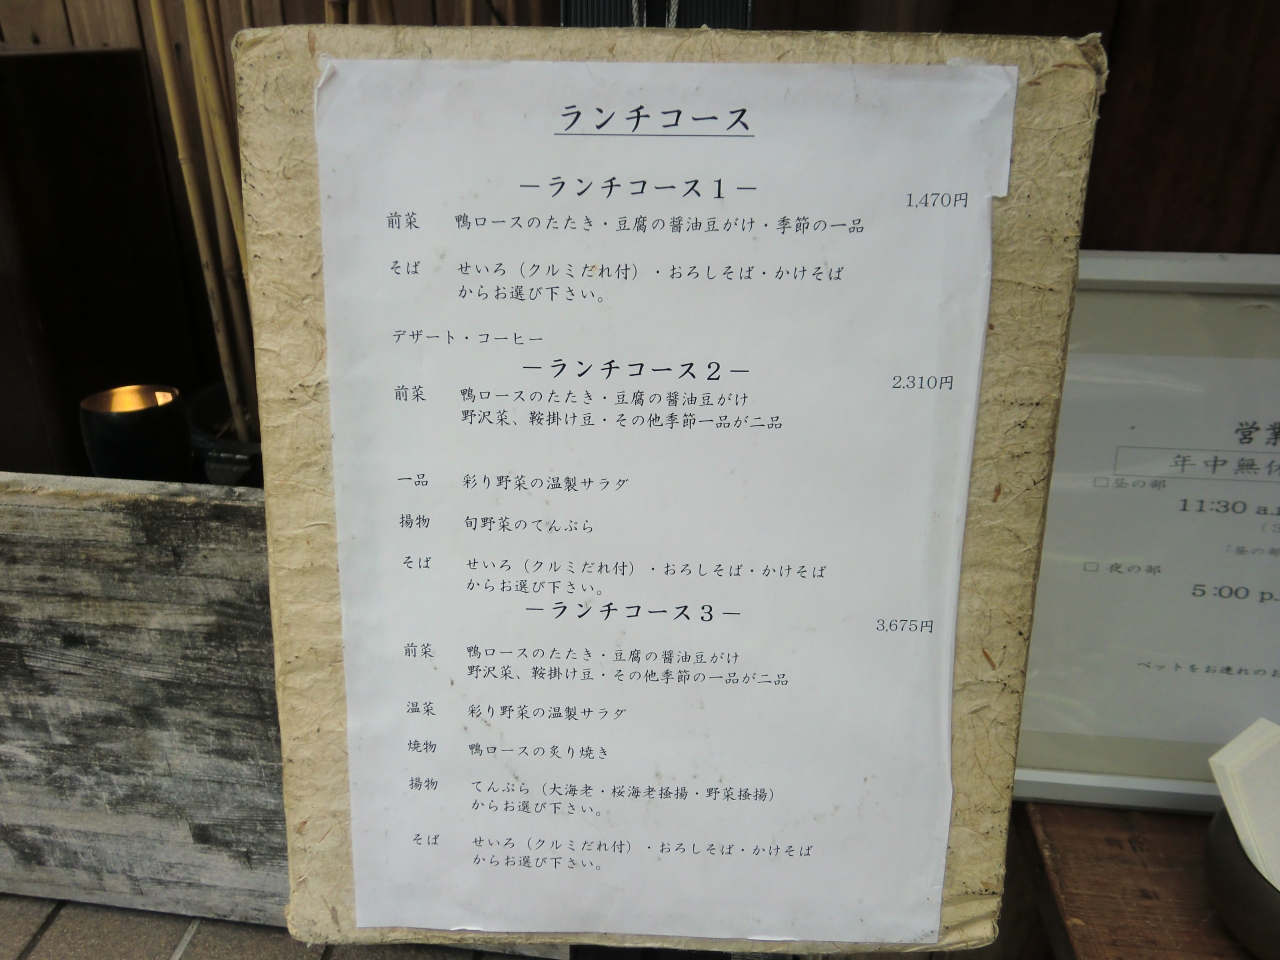 ランチコース
－ランチコース１－
1,470円
前菜 鴨ロースのたたき・豆腐の醤油豆がけ・季節の一品
そば せいろ（クルミだれ付）・おろしそば・かけそば
からお選び下さい。
デザート・コーヒー
－ランチコース２－
2,310円
前菜 鴨ロースのたたき・豆腐の醤油豆がけ
野沢菜、鞍掛け豆・その他季節一品が二品
一品 彩り野菜の温製サラダ
揚物 旬野菜のてんぷら
そば せいろ（クルミだれ付）・おろしそば・かけそば
からお選び下さい。
－ランチコース３－
3,675円
前菜 鴨ロースのたたき・豆腐の醤油豆がけ
野沢菜、鞍掛け豆・その他季節の一品が二品
温菜 彩り野菜の温製サラダ
焼物 鴨ロースの炙り焼き
揚物 てんぷら（大海老・桜海老掻揚・野菜掻揚）
からお選び下さい。
そば せいろ（クルミだれ付）・おろしそば・かけそば
からお選び下さい。
営業
年中無休
□昼の部
11:30 a.
「昼の部
□ 夜の部
5:00 p.
ペットをお連れのお